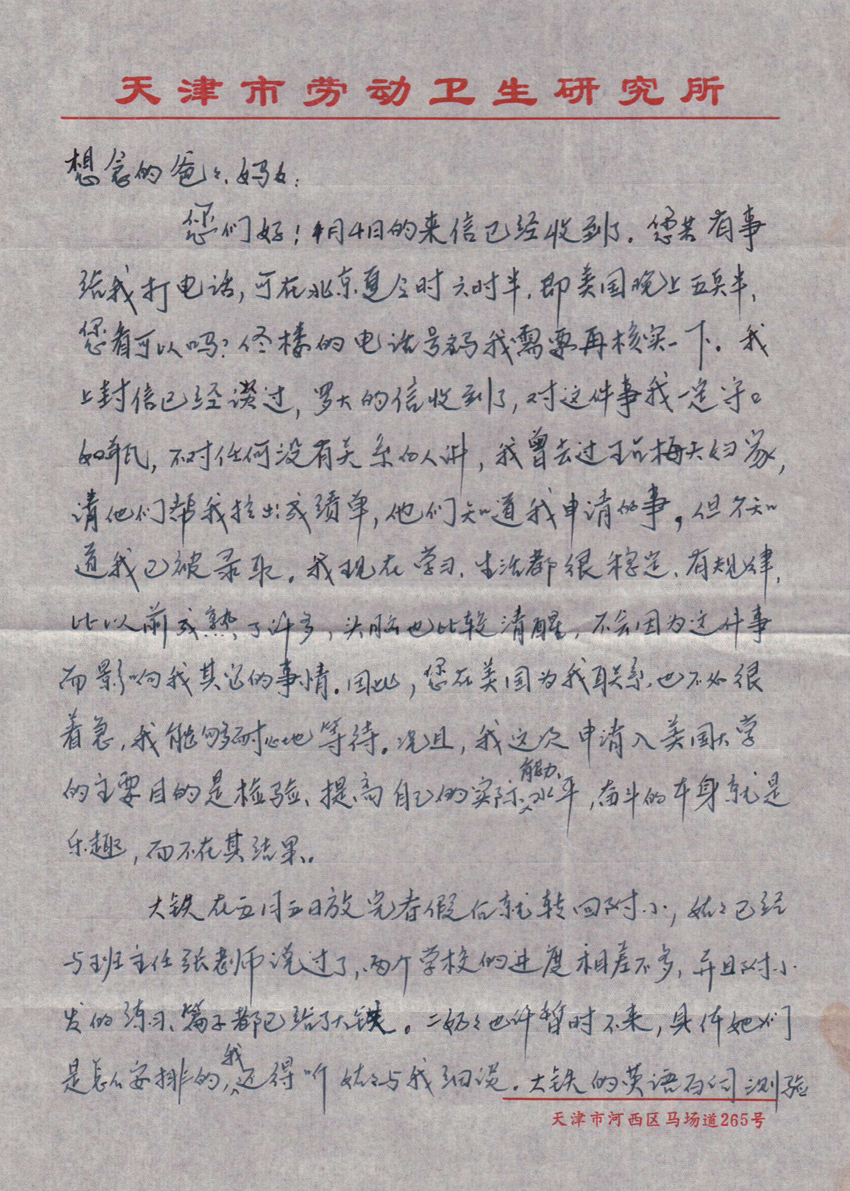 天津市劳动卫生研究所
想念的爸々、妈々:
您们好!4月4日的来信已经收到了。您若有事
给我打电话,可在北京夏令时六时半,即美国晚上五点半,
您看可以吗?佟楼的电话号码我需要再核实一下。我
上封信已经谈过,罗大的信收到了,对这件事我一定守口
如瓶,不对任何没有关系的人讲,我曾去过王品梅夫妇家,
请他们帮我打出成绩单,他们知道我申请的事,但不知
道我已被录取。我现在学习、生活都很稳定、有规律,
比以前成熟了许多,头脑也比较清醒,不会因为这件事
而影响我其它的事情。因此,您在美国为我联系,也不必很
着急,我能够耐心地等待。况且,我这次申请入美国大学
的主要目的是检验、提高自己的实际能力、水平,奋斗的本身就是
乐趣,而不在其结果。
大铁在五月五日放完春假后就转回附小,姑々已经
与班主任张老师说过了,两个学校的进度相差不多,并且附小
发的练习、篇子都已给了大铁。二奶々也许暂时不来,具体她们
是怎么安排的,我还得听姑々与我细说。大铁的英语
测验
天津市河西区马场道265号